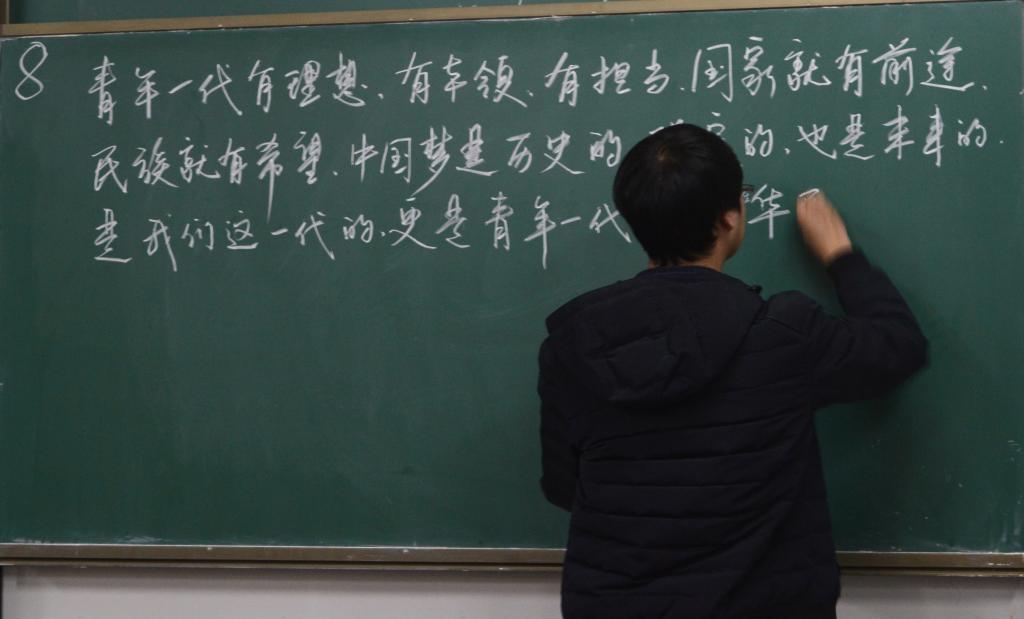 8
青年一代有理想、有本领、有担当,国家就有前途,
民族就有希望.中国梦是历史的、的、也是未来的.
是我们这一代的、更是青年一代华